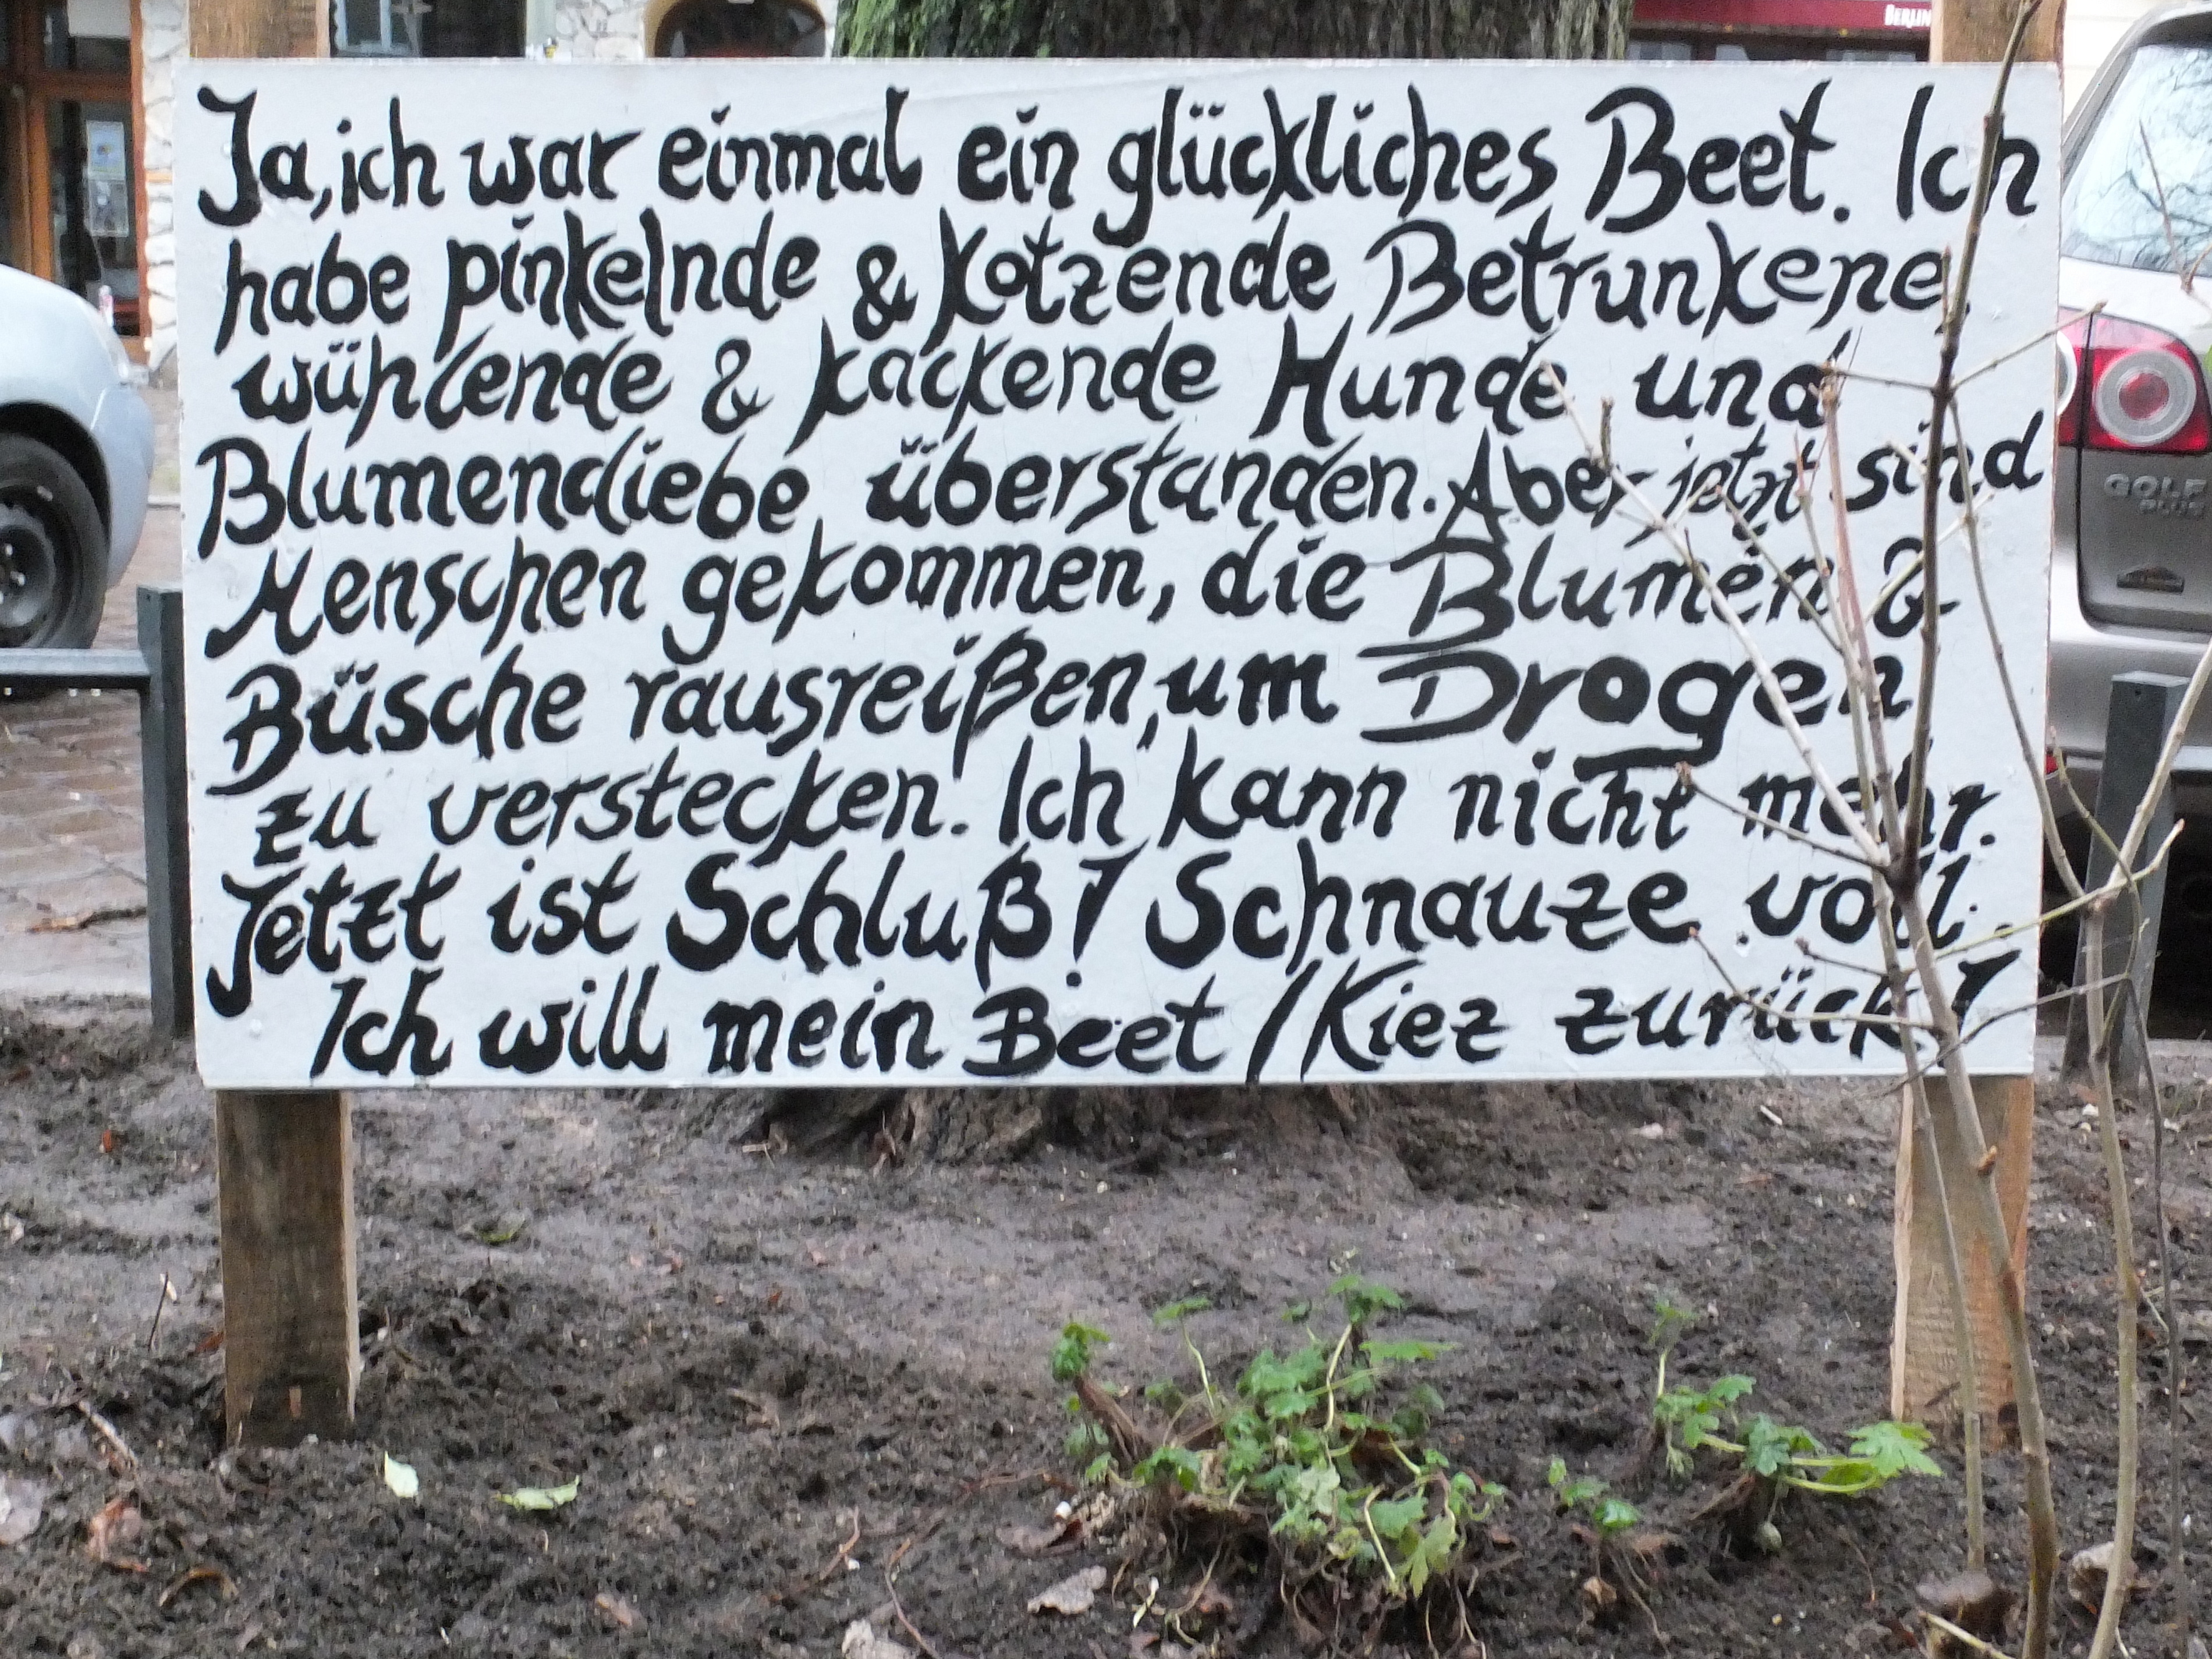 BERLIN
Ja, ich war einmal ein glückliches Beet. Ich
habe pinkelnde & kotzende Betrunkene,
wühlende & kackende Hunde und
Blumendiebe überstanden. Aber jetzt sind
Menschen gekommen, die Blumen &
Büsche rausreißen, um Drogen
zu verstecken. Ich kann nicht mehr.
Jetzt ist Schluß! Schnauze voll.
Ich will mein Beet / Kiez zurück!
GOLF
PLUS